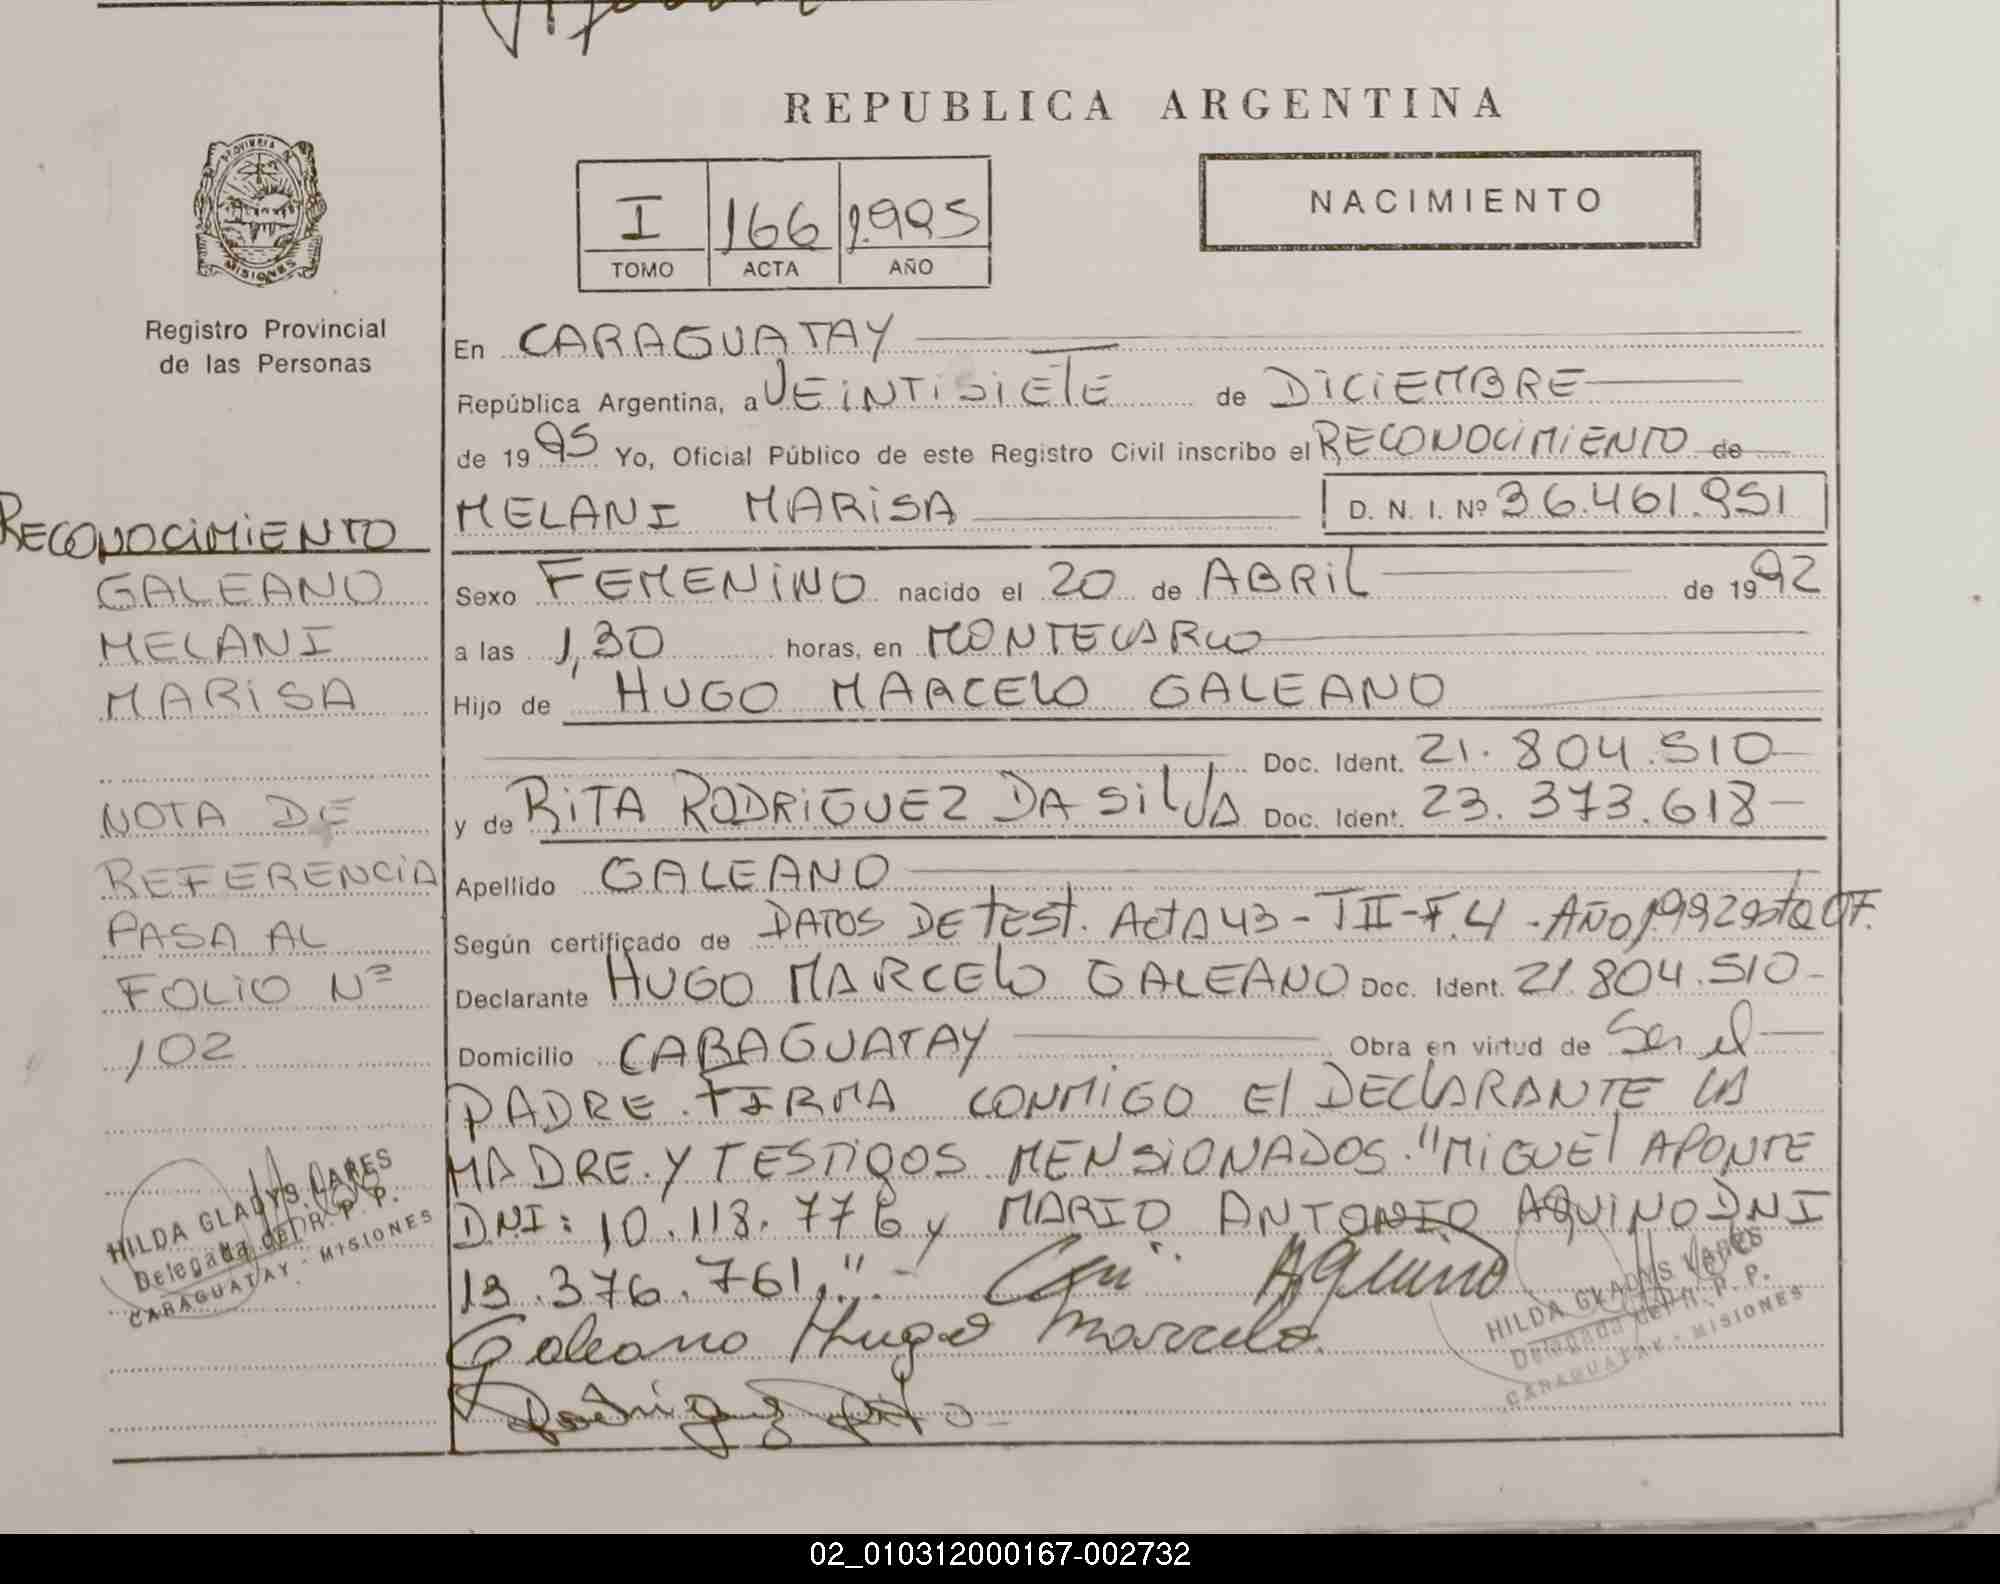 REPUBLICA ARGENTINA
PROVINCIA DE
MISIONES
Registro Provincial
de las Personas
I 166 1.995
TOMO ACTA AÑO
NACIMIENTO
En CARAGUATAY
República Argentina, a VEINTISIETE de DICIEMBRE
de 1995 Yo, Oficial Público de este Registro Civil inscribo el RECONOCIMIENTO de
MELANI MARISA D. N. I. Nº 36.461.951
Sexo FEMENINO nacido el 20 de ABRIL de 1992
a las 1,30 horas, en MONTECARLO
Hijo de HUGO MARCELO GALEANO
Doc. Ident. 21.804.510
y de RITA RODRIGUEZ DA SILVA Doc. Ident. 23.373.618
Apellido GALEANO
Según certificado de DATOS DE TEST. ACTA 43 - TII - F.4 - AÑO 1992
Declarante HUGO MARCELO GALEANO Doc. Ident. 21.804.510
Domicilio CARAGUATAY Obra en virtud de Ser el
PADRE. FIRMA CONMIGO El DECLARANTE LA
MADRE. Y TESTIGOS MENSIONADOS. "MIGUEl APONTE
DNI: 10.118.776 y MARIO ANTONIO AQUINO DNI
13.376.761,"
Aquino
Galeano Hugo Marcelo
Rodriguez Rita
RECONOCIMIENTO
GALEANO
MELANI
MARISA
NOTA DE
REFERENCIA
PASA AL
FOLIO Nº
102
HILDA GLADYS LARES
Delegada del R. P. P.
CARAGUATAY - MISIONES
HILDA GLADYS LARES
Delegada del R. P. P.
CARAGUATAY - MISIONES
02_010312000167-002732